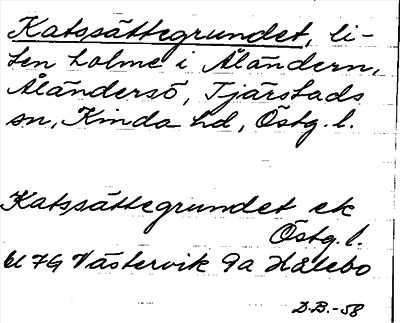 Katssättegrundet, li-
ten holme i Åländern,
Åländersö, Tjärstads
sn, Kinda hd, Östg. l.
Katssättegrundet ek
Östg. l.
61 7G Västervik 9a Hålebo
D.B.-58